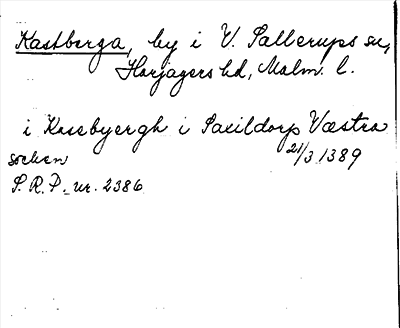 Kastberga, by i V. Sallerups sn,
Harjagers hd, Malm. l.
i Kasebyergh i Saxildorp Væstra
socken 21/3 1389
S. R. P. nr. 2386